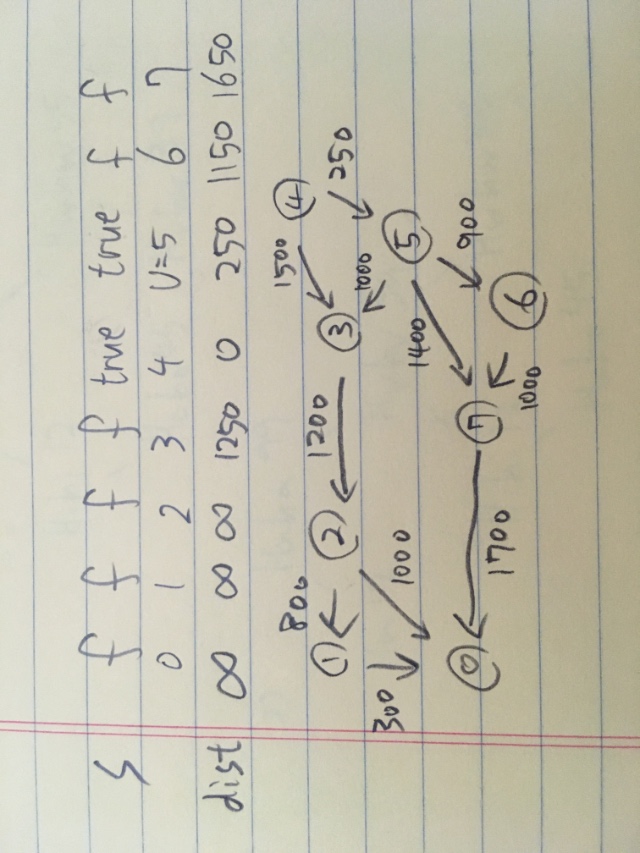 S f f f f true true f f
0 1 2 3 4 U=5 6 7
dist ∞ ∞ ∞ 1250 0 250 1150 1650
800 1500
1 2 1200 3 4
300 1000 1000 250
1400 5
0 7 900
1700 1000 6